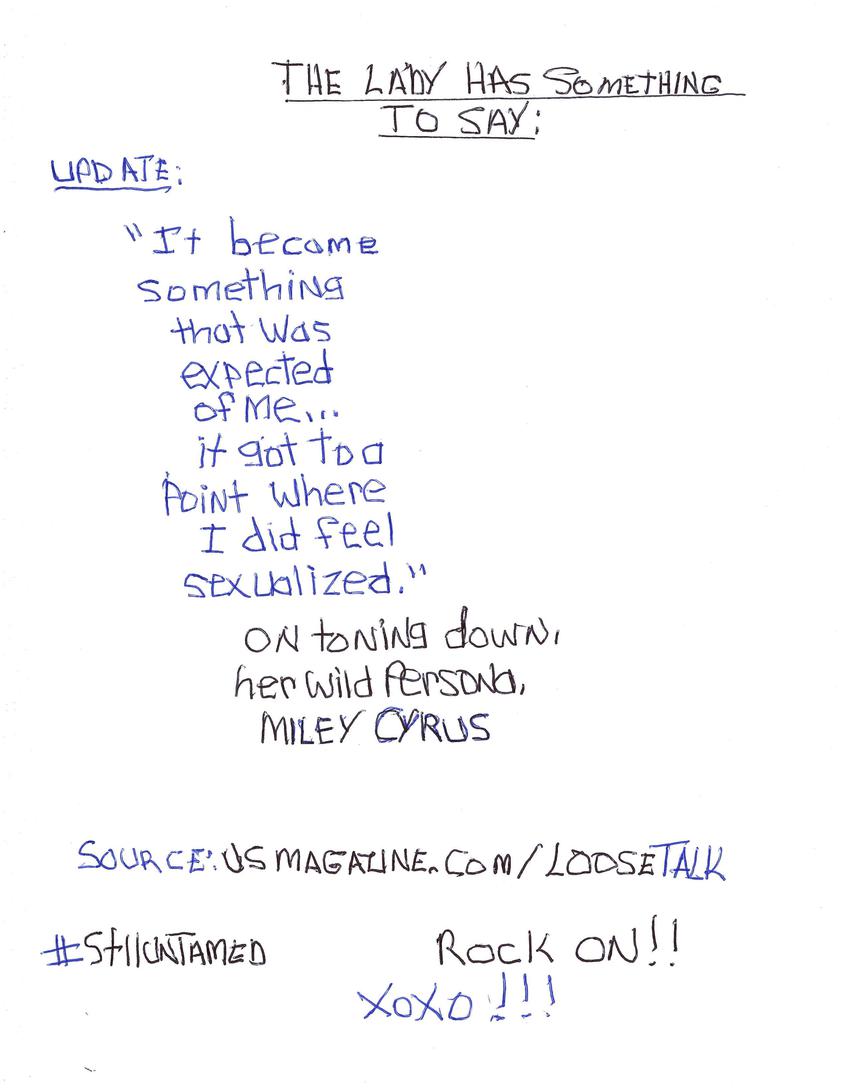 THE LADY HAS SOMETHING
TO SAY:
UPDATE:
"It become
something
that was
expected
of me...
it got to a
point where
I did feel
sexualized."
ON toning down,
her wild Persona,
MILEY CYRUS
SOURCE: USMAGAZINE.COM/LOOSETALK
#StllUNTAMED
ROCK ON!!
XOXO!!!